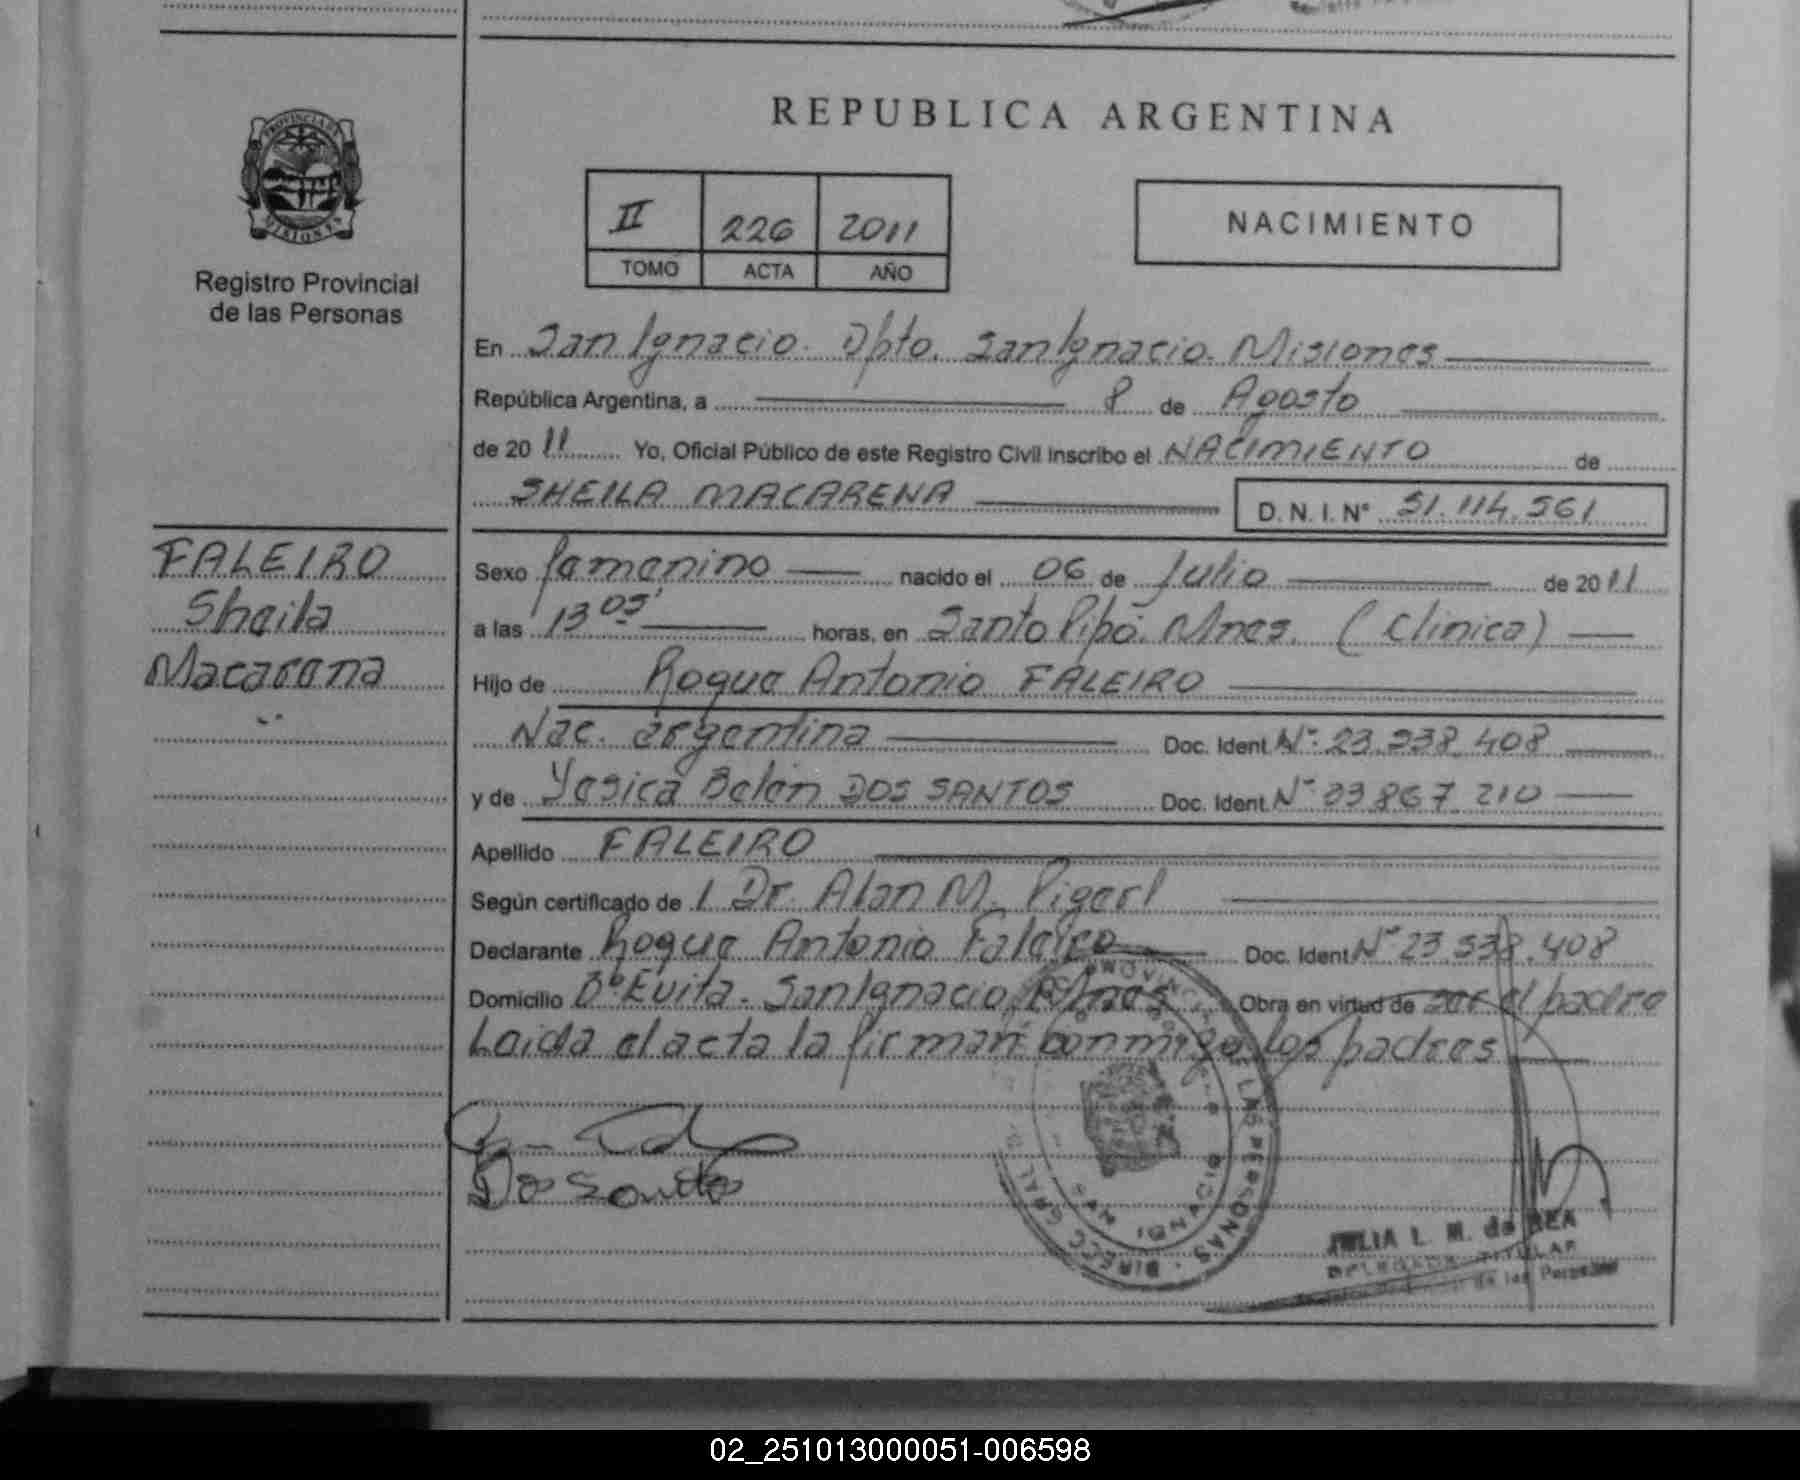 REPUBLICA ARGENTINA
PROVINCIA DE
MISIONES
Registro Provincial
de las Personas
II 226 2011
TOMO ACTA AÑO
NACIMIENTO
En San Ignacio. Dpto. San Ignacio. Misiones
República Argentina, a 8 de Agosto
de 2011 Yo, Oficial Público de este Registro Civil inscribo el NACIMIENTO de
SHEILA MACARENA D. N. I. N° 51.114.561
FALEIRO
Sheila
Macarena
Sexo femenino nacido el 06 de Julio de 2011
a las 13 05' horas, en Santo Pipó. Mnes. (Clinica)
Hijo de Roque Antonio FALEIRO
Nac. argentina Doc. Ident. N° 23.338.408
y de Yesica Belén DOS SANTOS Doc. Ident. N° 33.867.210
Apellido FALEIRO
Según certificado de / Dr. Alan M. Pigerl
Declarante Roque Antonio Faleiro Doc. Ident N° 23.338.408
Domicilio B° Evita. San Ignacio Mnes Obra en virtud de ser el padre
Leida el acta la firman conmigo los padres
Dos Santos
DIREC. GRAL. LAS PERSONAS
JULIA L. M. de REA
DELEGADA TITULAR
de las Personas
02_251013000051-006598